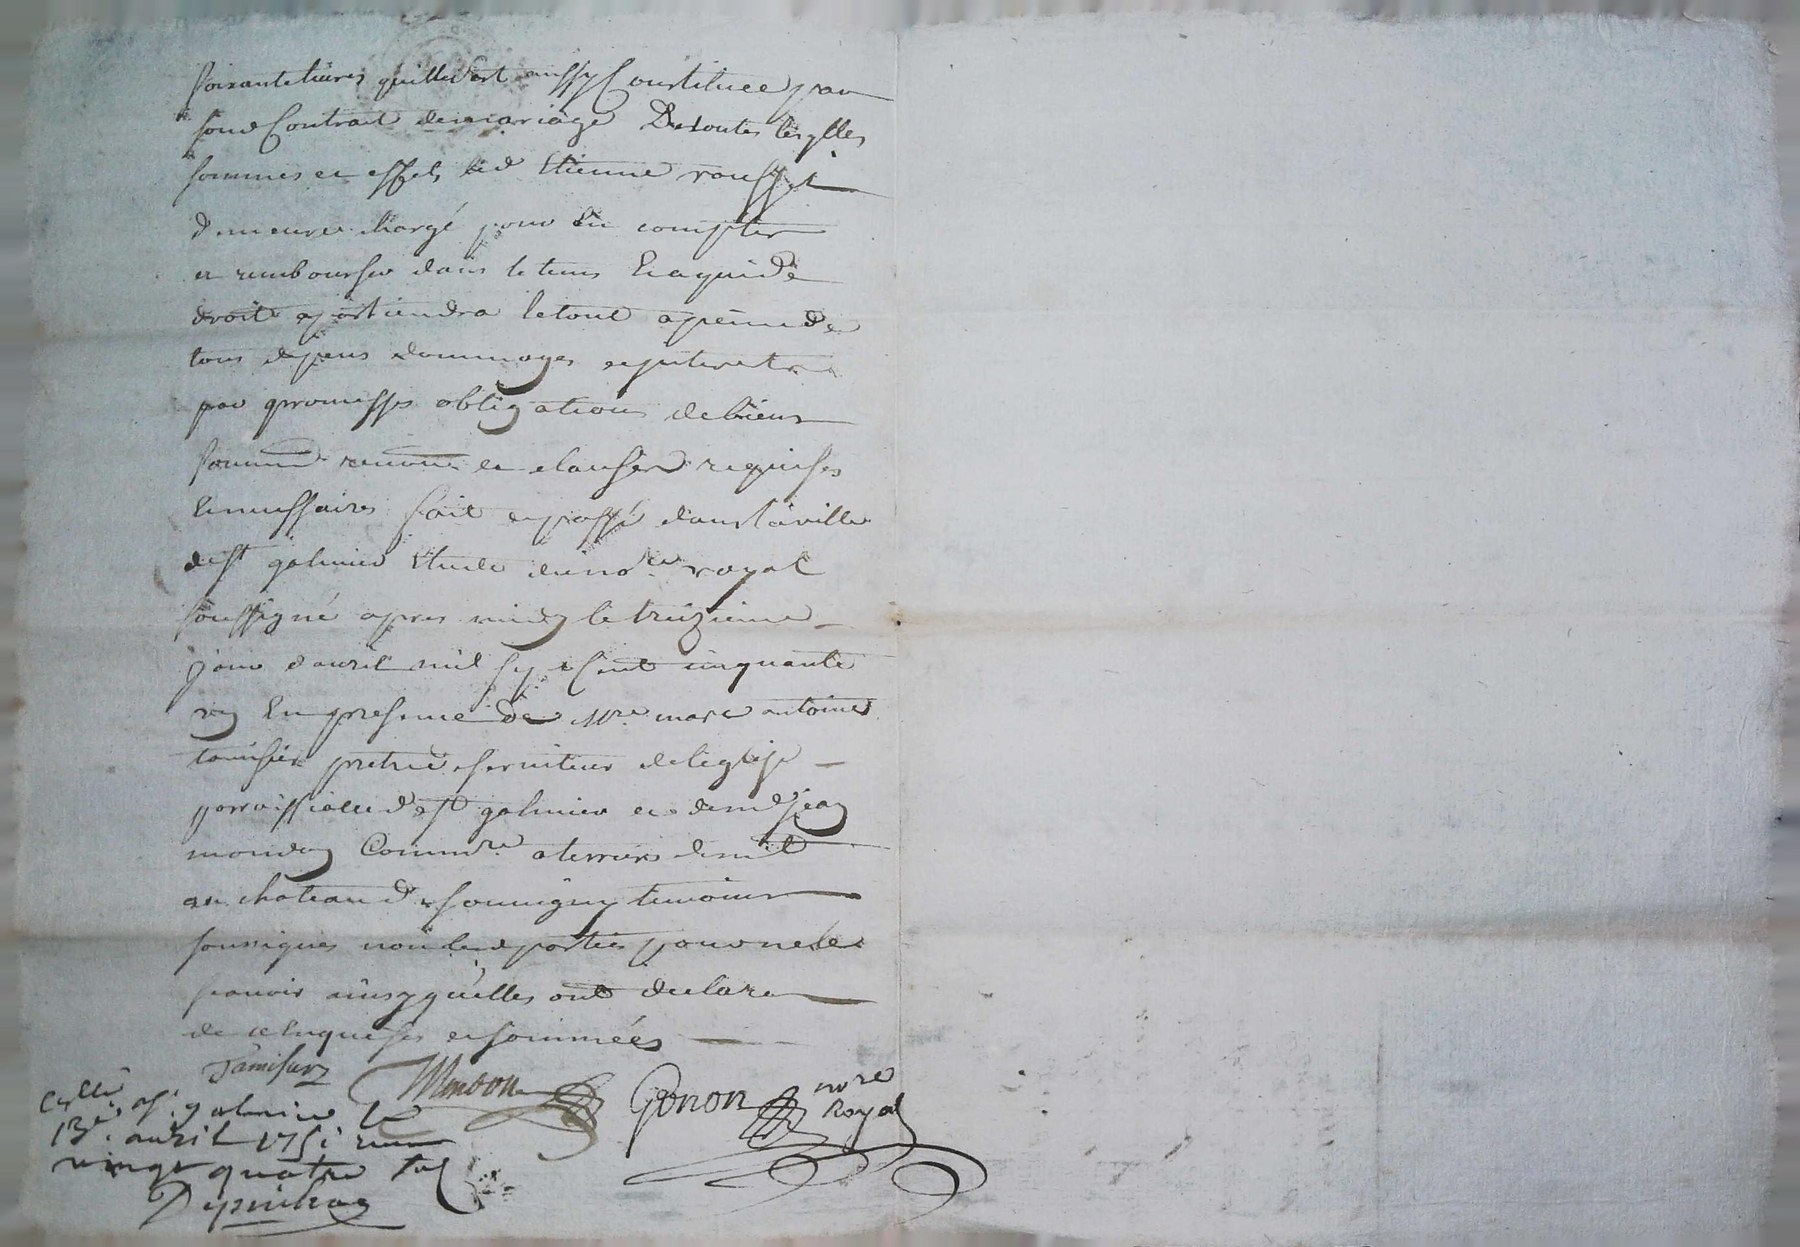 soixante livres quelle sest aussy Constituee par
sond Contrat de mariage Desquelles
sommes et effets led Etienne roussct
demeure chargé pour En compter
et rembourser dans le tems Et a qui de
droit apartiendra le tout a peine de
tous depens dommages et interets
par promesses obligations de biens
soumis renon et clauses requises
Et necessaires fait et passé dans la ville
de st galmier Etude du nore royal
soussigné apres midy le treizieme
jour d'avril mil sept Cent cinquante
un En presence de Mre marc antoine
tamisier pretre serviteur de leglise
parroissialle de st galmier et de md jean
mondon Commre a terriers demt
au chateau de souvigny temoins
soussignes non les parties pour ne le
scavoir ainsy quelles ont declare
de ce Enquises et sommées
Tamisier
Mondon
Gonon nore Royal
Cллé a st galmier le
13e. avril 1751 reçu
vingt quatre sols